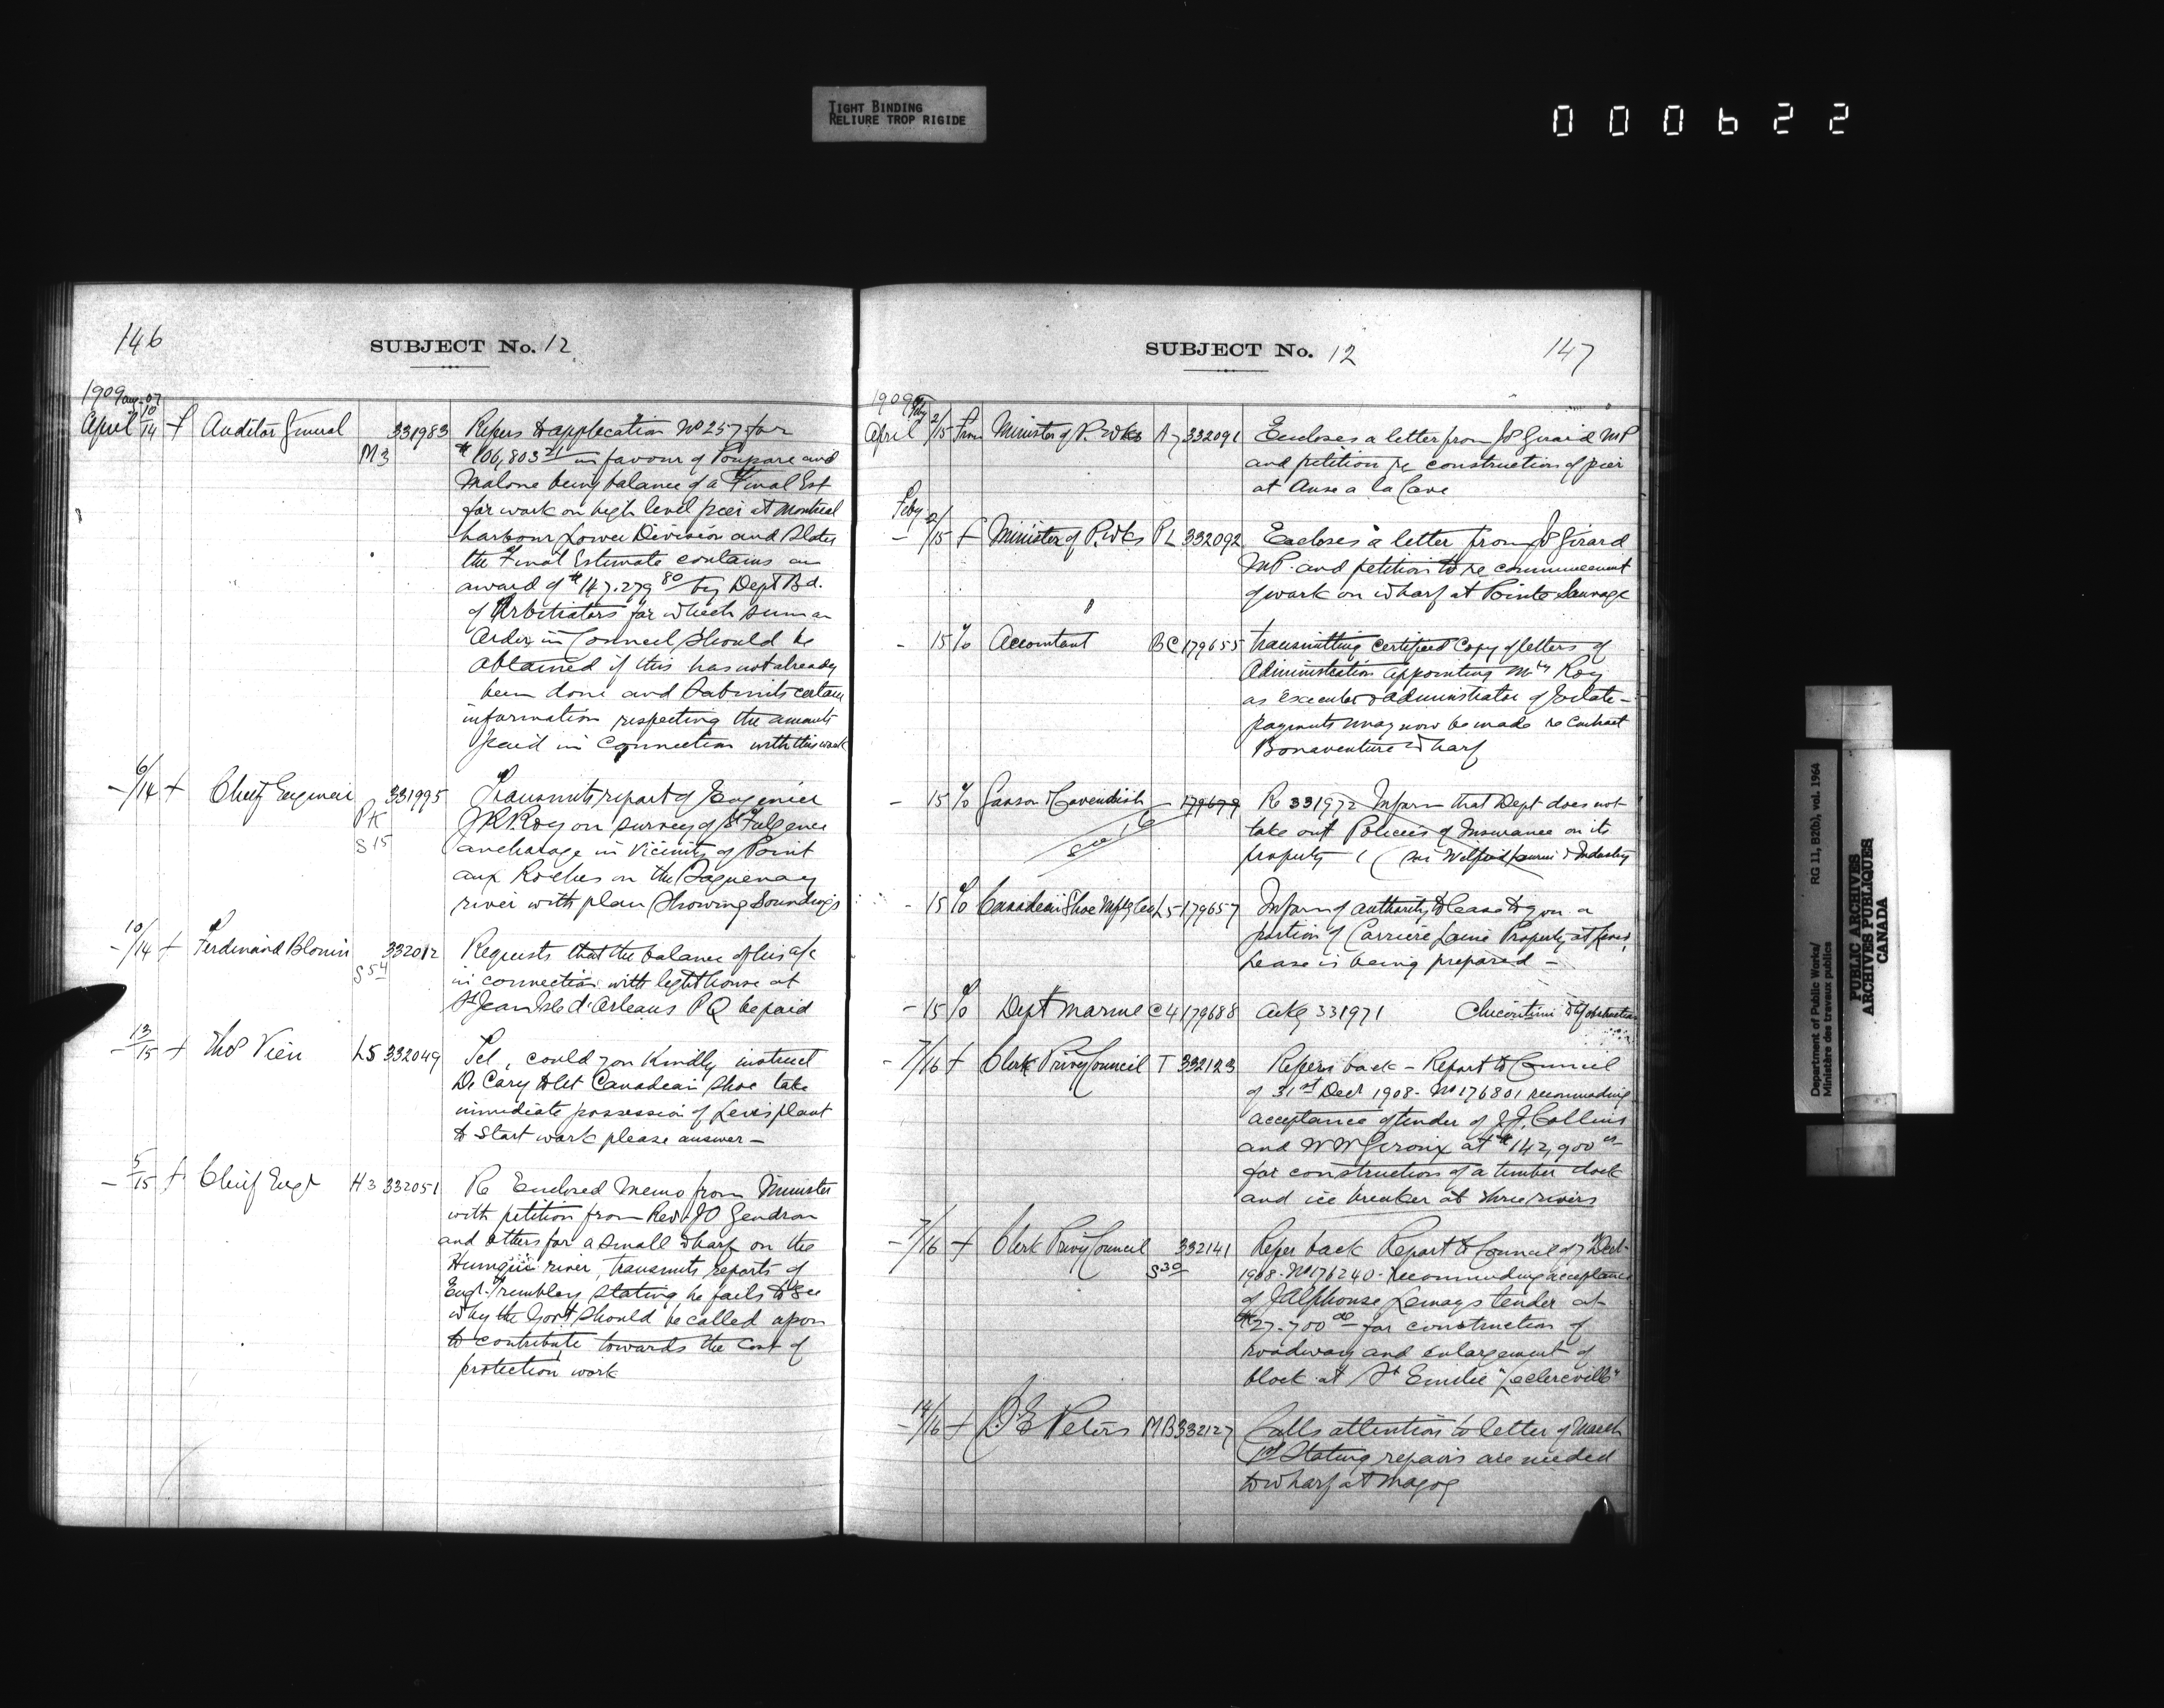 TIGHT BINDING
RELIURE TROP RIGIDE
000622
146
SUBJECT No. 12
1909 Aug 07
April 10/14 f Auditor General M3 331983 Refers to application No 257 for
$106,803 21 in favour of Poupore and
Malone being balance of a Final Est
for work on high level pier at Montreal
harbour Lower Division and States
the Final Estimate contains an
award of $147.279 80 by Dept Bd.
of Arbitrators for which sum an
Order in Council should be
obtained if this has not already
been done and Submits certain
information respecting the amounts
paid in connection with this work
- 6/14 f Chief Engineer PK S15 331995 Transmits report of Engineer
J R Roy on survey of St Fulgence
anchorage in vicinity of Point
aux Roches on the Saguenay
river with plan showing Soundings
- 10/14 f Ferdinand Blouin S54 332012 Requests that the balance of his a/c
in connection with lighthouse at
St Jean Isle d'Orleans PQ be paid
- 13/15 f Thos Vien L5 332049 Tel, could you kindly instruct
De Cary to let Canadian Shoe take
immediate possession of Levis plant
to start work please answer -
- 5/15 f Chief Engr H3 332051 Re Enclosed Memo from Minister
with petition from Rev JO Gendron
and others for a small wharf on the
Humqui river, transmits reports of
Engr Tremblay stating he fails to see
why the Govt should be called upon
to contribute towards the cost of
protection work
SUBJECT No. 12
147
1909 Feby
April 2/15 from Minister of P. Wks A7 332091 Encloses a letter from JP Girard MP
and petition re construction of pier
at Anse a la Cave
Feby
- 2/15 f Minister of P. Wks PL 332092 Encloses a letter from JP Girard
MP. and petition to re commencement
of work on wharf at Pointe Sauvage
- 15 To Accountant BC 179655 transmitting certified Copy of letters of
Administration appointing Mrs Roy
as executor & administrator of Estate -
payments may now be made re Contract
Bonaventure Wharf
- 15 To Janson & Cavendish - 179679 Re 331972 Inform that Dept does not
take out Policies of Insurance on its
property (Sir Wilfrid Laurier & Industry
See 16
- 15 To Canadian Shoe Mftg Co L5 179657 Inform of authority to lease to you a
portion of Carriere Laine Property at Levis,
Lease is being prepared -
- 15 To Dept Marine C4 179688 ackg 331971 Chicoutimi & Obstruction
- 7/16 f Clerk Privy Council T 332123 Refers back - Report to Council
of 31st Decr 1908 - No 176801 recommending
acceptance of tender of J.J. Collins
and W W Geroux at $142,900
for construction of a timber dock
and ice breaker at three rivers
- 7/16 f Clerk Privy Council S30 332141 Refer back Report to Council of 7 Decr
1908 - No 176240 - recommending acceptance
of J Alphonse Lemays tender at
$27.700 00 for construction of
roadway and enlargement of
block at St Emilie "Leclercville"
- 14/16 f D.E Peters MB 332127 Calls attention to letter of March
1st Stating repairs are needed
to wharf at Magog
Department of Public Works/
Ministère des travaux publics
RG 11, B2(b), vol. 1964
PUBLIC ARCHIVES
ARCHIVES PUBLIQUES
CANADA